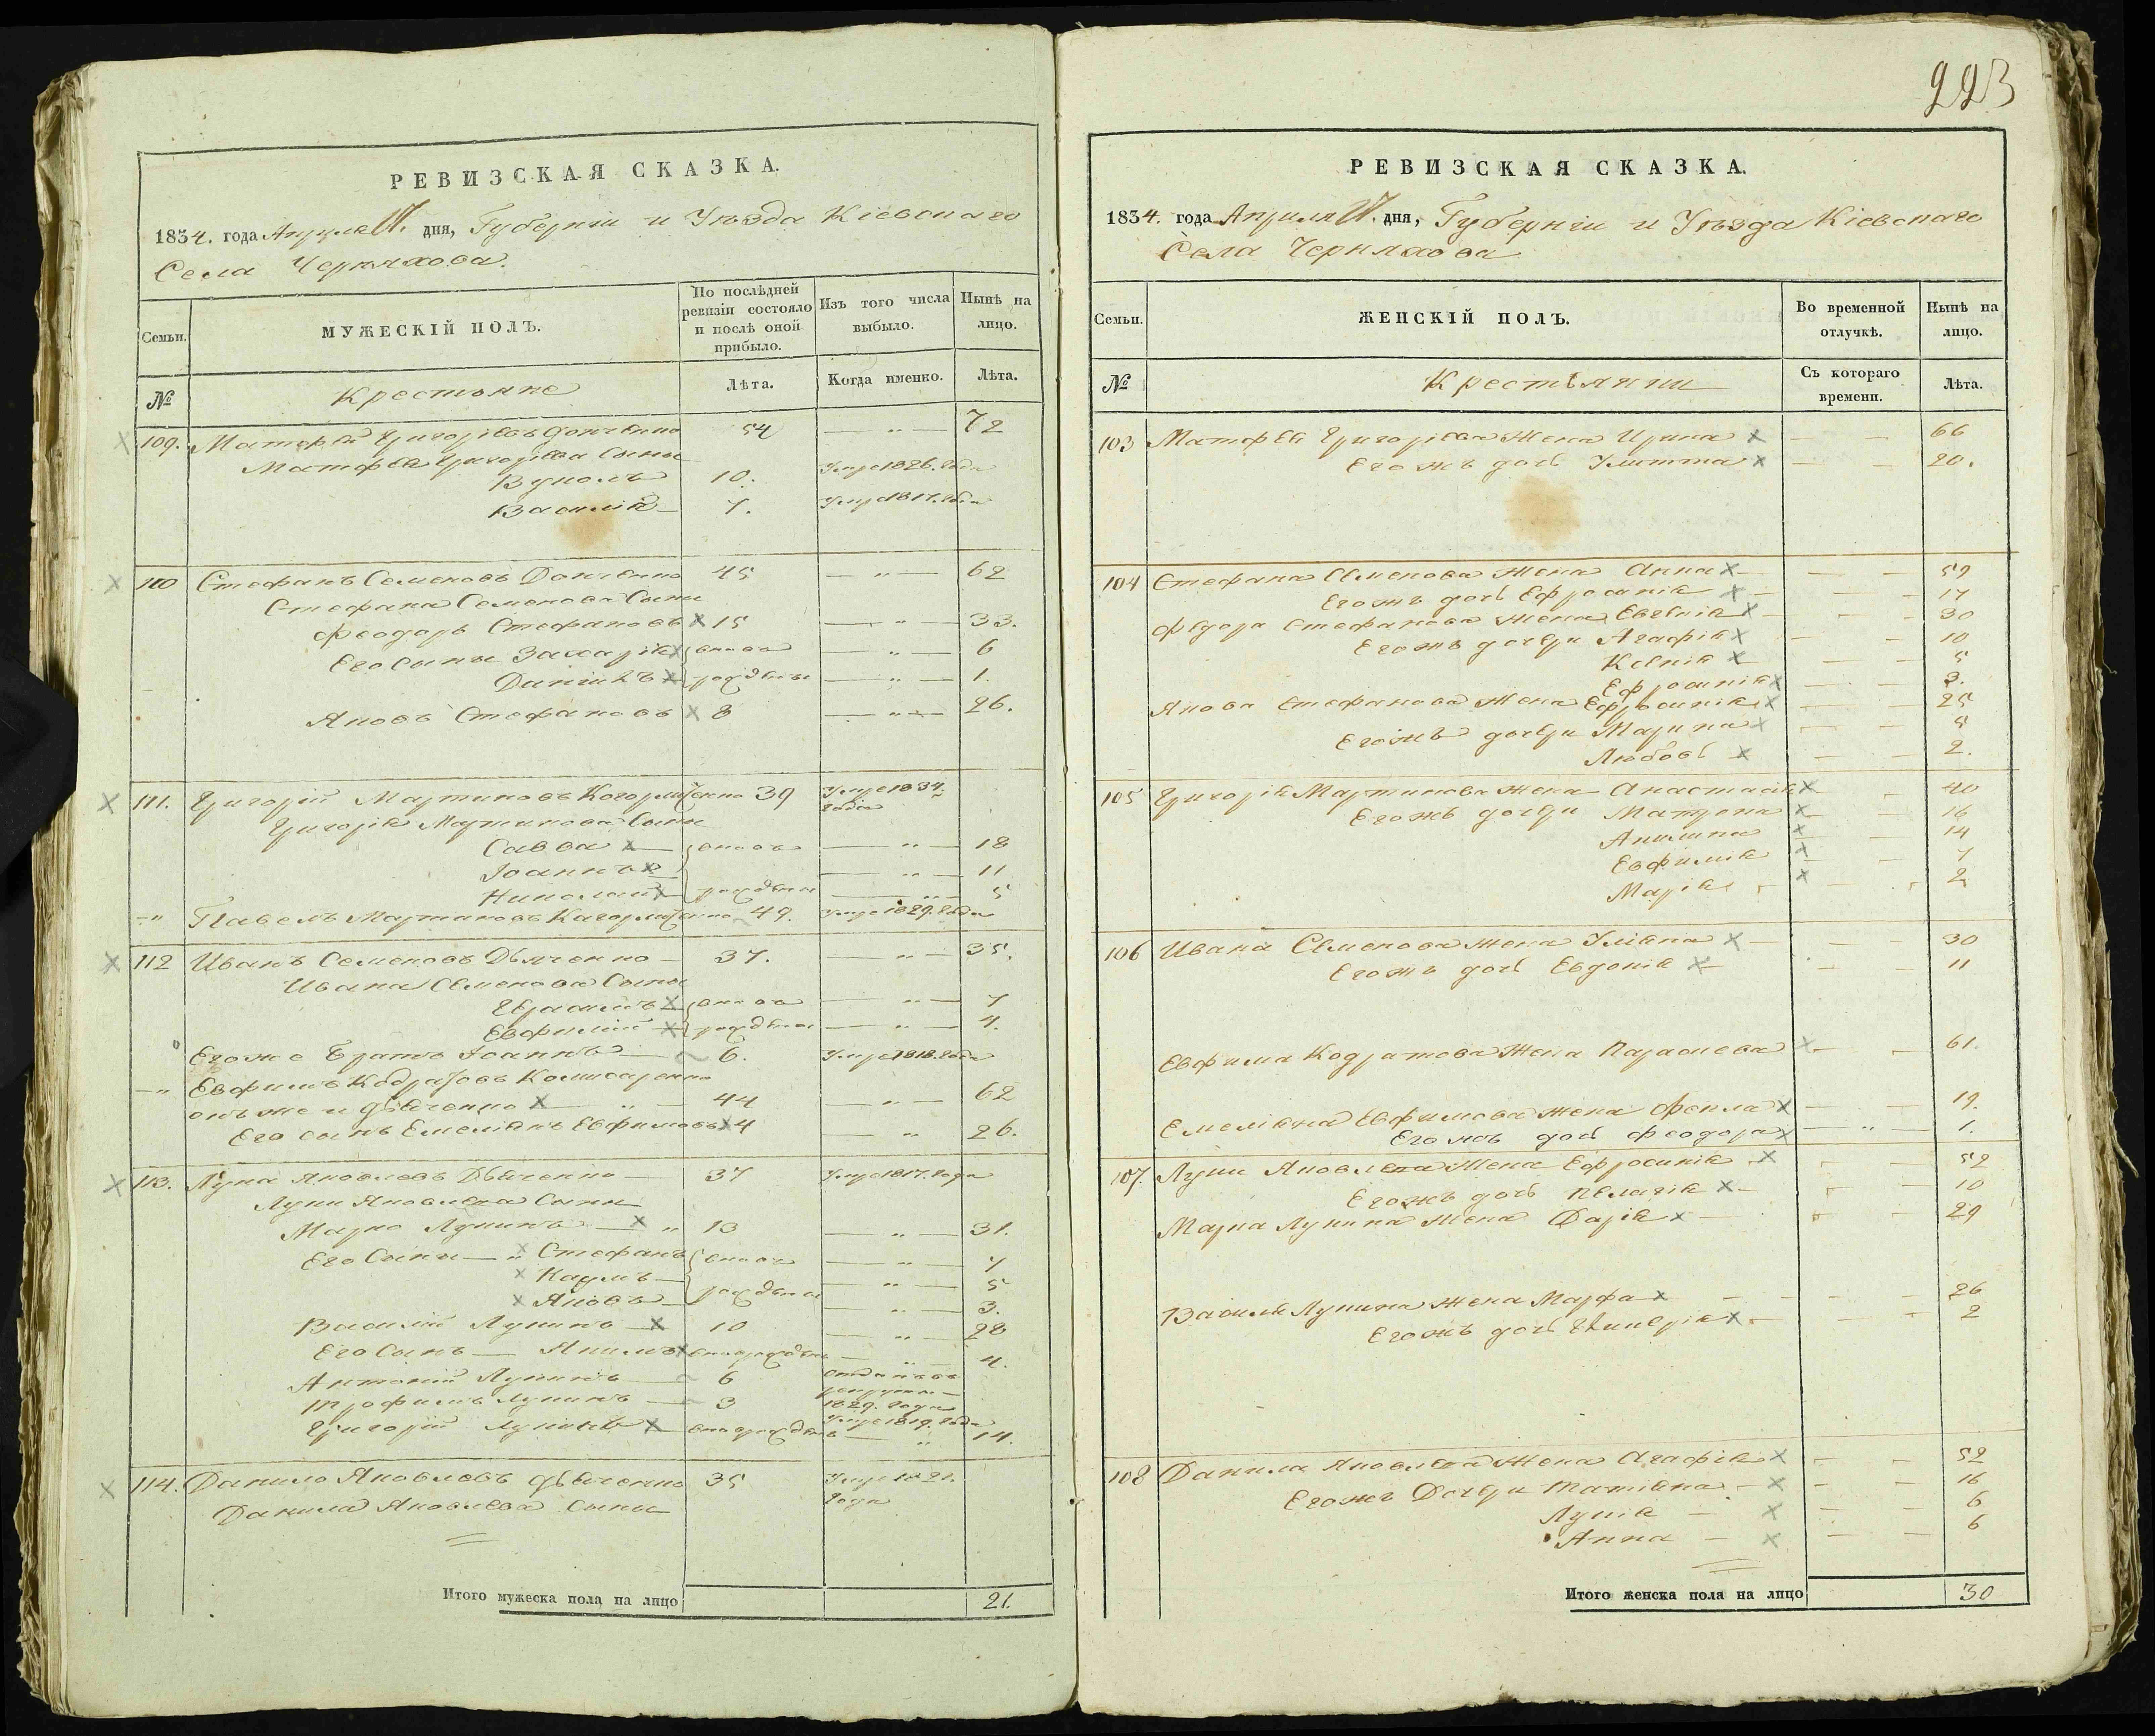 223
РЕВИЗСКАЯ СКАЗКА.
1834. года Апреля дня, Губерніи и Уѣзда Кіевскаго
Села Черняхова.
Семьи.
МУЖЕСКІЙ ПОЛЪ.
По послѣдней ревизіи состояло и послѣ оной прибыло.
Изъ того числа выбыло.
Нынѣ на лицо.
№
Крестьяне
Лѣта.
Когда именно.
Лѣта.
109. Матфей Григорьевъ Донченко 54 — " — 72
Матфея Григорьева Сыны
Вуколъ 10. Умре 1826. года
Василій 7. Умре 1817. года
110 Стефанъ Семеновъ Донченко 45 — " — 62
Стефана Семенова Сыны
Феодоръ Стефановъ 15 — " — 33.
Его Сыны Захарій вновь — " — 6
Даніилъ рожденны — " — 1.
Яковъ Стефановъ 8 — " — 26.
111. Григорій Мартиновъ 39 Умре 1834 года
Григорія Мартинова Сыны
Савва вновь — " — 18
Іоаннъ — " — 11
Николай рожденны — " — 5
— " Павелъ Мартиновъ 49. Умре 1829. года
112 Иванъ Семеновъ Дьяченко — 37. — " — 35.
Ивана Семенова Сыны
Герасимъ вновь — " — 7
Евфимій рожденны — " — 4.
Его же Братъ Іоаннъ 6. Умре 1818. года
— " Евфимъ Кодратовъ Комисаренко
онъ же и Дьяченко — " — 44 — " — 62
Его сынъ Емеліянъ Евфимовъ 4 — " 26.
113. Лука Яковлевъ Дьяченко — 37 Умре 1817. года
Луки Яковлева Сыны
Марко Лукинъ " 13 — " — 31.
Его Сыны — " Стефанъ вновь — " — 7
— " — 5
Яковъ рожденны — " — 3.
Василій Лукинъ 10 — " — 28
Его Сынъ — Якимъ — " 4.
Антоній Лукинъ 6 отданъ въ рекруты — 1829. года
Трофимъ Лукинъ 3 Умре 1819. года
Григорій Лукинъ " 14.
114. Данило Яковлевъ Дьяченко 35 Умре 1821. года
Данила Яковлева Сыны
Итого мужеска пола на лицо 21.
РЕВИЗСКАЯ СКАЗКА.
1834. года Апреля дня, Губерніи и Уѣзда Кіевскаго
Села Черняхова
Семьи.
ЖЕНСКІЙ ПОЛЪ.
Во временной отлучкѣ.
Нынѣ на лицо.
№
Крестьянки
Съ котораго времени.
Лѣта.
103 Матфея Григорьева Жена Ирина — — 66
Егожъ дочь — — 20.
104 Стефана Семенова Жена Анна — — 59
Егожъ дочь Ефросинія — — 17
Федора Стефанова Жена Евгенія — — 30
Егожъ дочери Агафія — — 10
Ксенія — — 5
Ефросинія — — 3.
Якова Стефанова Жена Ефросинія — — 25
Егожъ дочери Марина — — 5
Любовь — — 2.
105 Григорія Мартинова Жена Анастасія — 40
Егожъ дочери Матрена — — 16
Акилина — — 14
Евфимія — — 7
Марія — 2
106 Ивана Семенова жена Уліяна — 30
Егожъ дочь Евдокія — — 11
Евфима Кодратова Жена Параскева — — 61.
Емеліяна Евфимова жена Фекла — — 19.
Егожъ дочь Феодора — " — 1.
107. Луки Яковлева Жена Ефросинія — 52
Егожъ дочь Пелагія — 10
Марка Лукина Жена Дарія — 29
Василія Лукина жена Марфа — — 26
Егожъ дочь — — 2
108 Данила Яковлева Жена Агафія — — 52
Егожъ Дочери Татіяна — — 16
Лукія — — 6
Анна — — 6
Итого женска пола на лицо 30